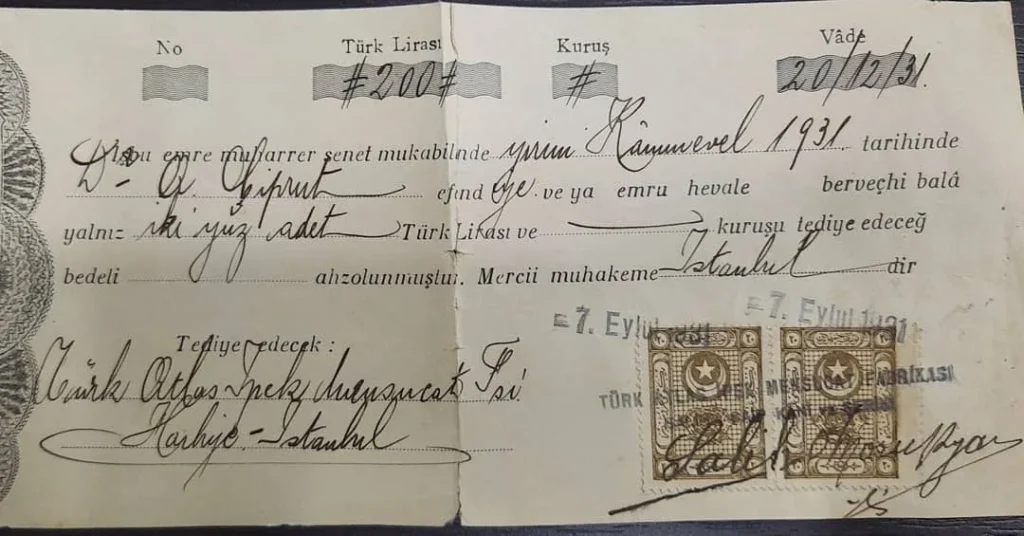 No Türk Lirası Kuruş Vâde
#200# # 20/12/31.
İşbu emre muharrer senet mukabilinde yirmi Kânunuevel 1931. tarihinde
Dr A. Ciprut efend ye. ve ya emru hevale berveçhi balâ
yalnız iki yüz adet Türk Lirası ve kuruşu tediye edeceğ
bedeli ahzolunmuştur. Mercii muhakeme İstanbul dir
=7. Eylul 1931 =7. Eylul 1931
Tediye edecek :
Türk Atlas İpek Mensucat Fsi
Harbiye - İstanbul
TÜRK ATLAS İPEK MENSUCAT FABRİKASI